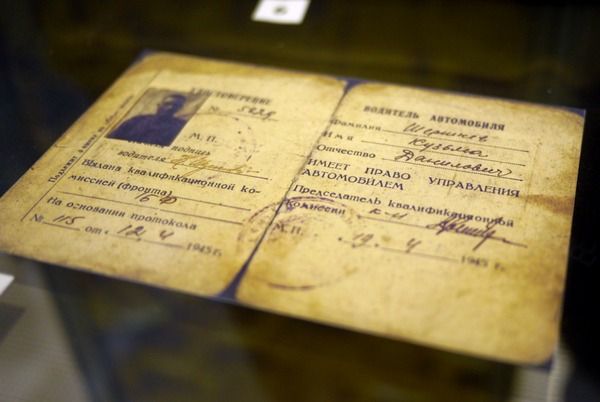 6
УДОСТОВЕРЕНИЕ
№
М. П.
подпись
водителя
Выдана квалификационной ко-
миссией (фронта) 16 Ф
На основании протокола
№ 115 от „ 12 „ 4 1945 г.
ВОДИТЕЛЬ АВТОМОБИЛЯ
Фамилия
Имя Кузьма
Отчество Данилович
ИМЕЕТ ПРАВО УПРАВЛЕНИЯ
АВТОМОБИЛЕМ
Председатель квалификационной
комиссии к-н
М. П. 4 1945 г.